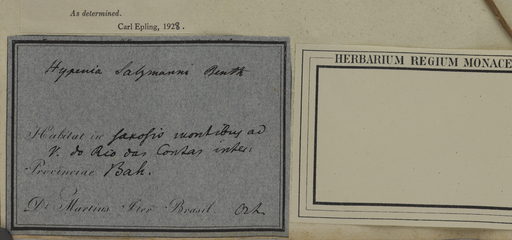 As determined.
Carl Epling, 1928.
Hypenia Salzmanni Benth
Habitat in saxosis montibus ad
V. do Rio das Contas inter.
Provinciae Bah.
Dr Martius Iter Brasil. Oct.
HERBARIUM REGIUM MONACE